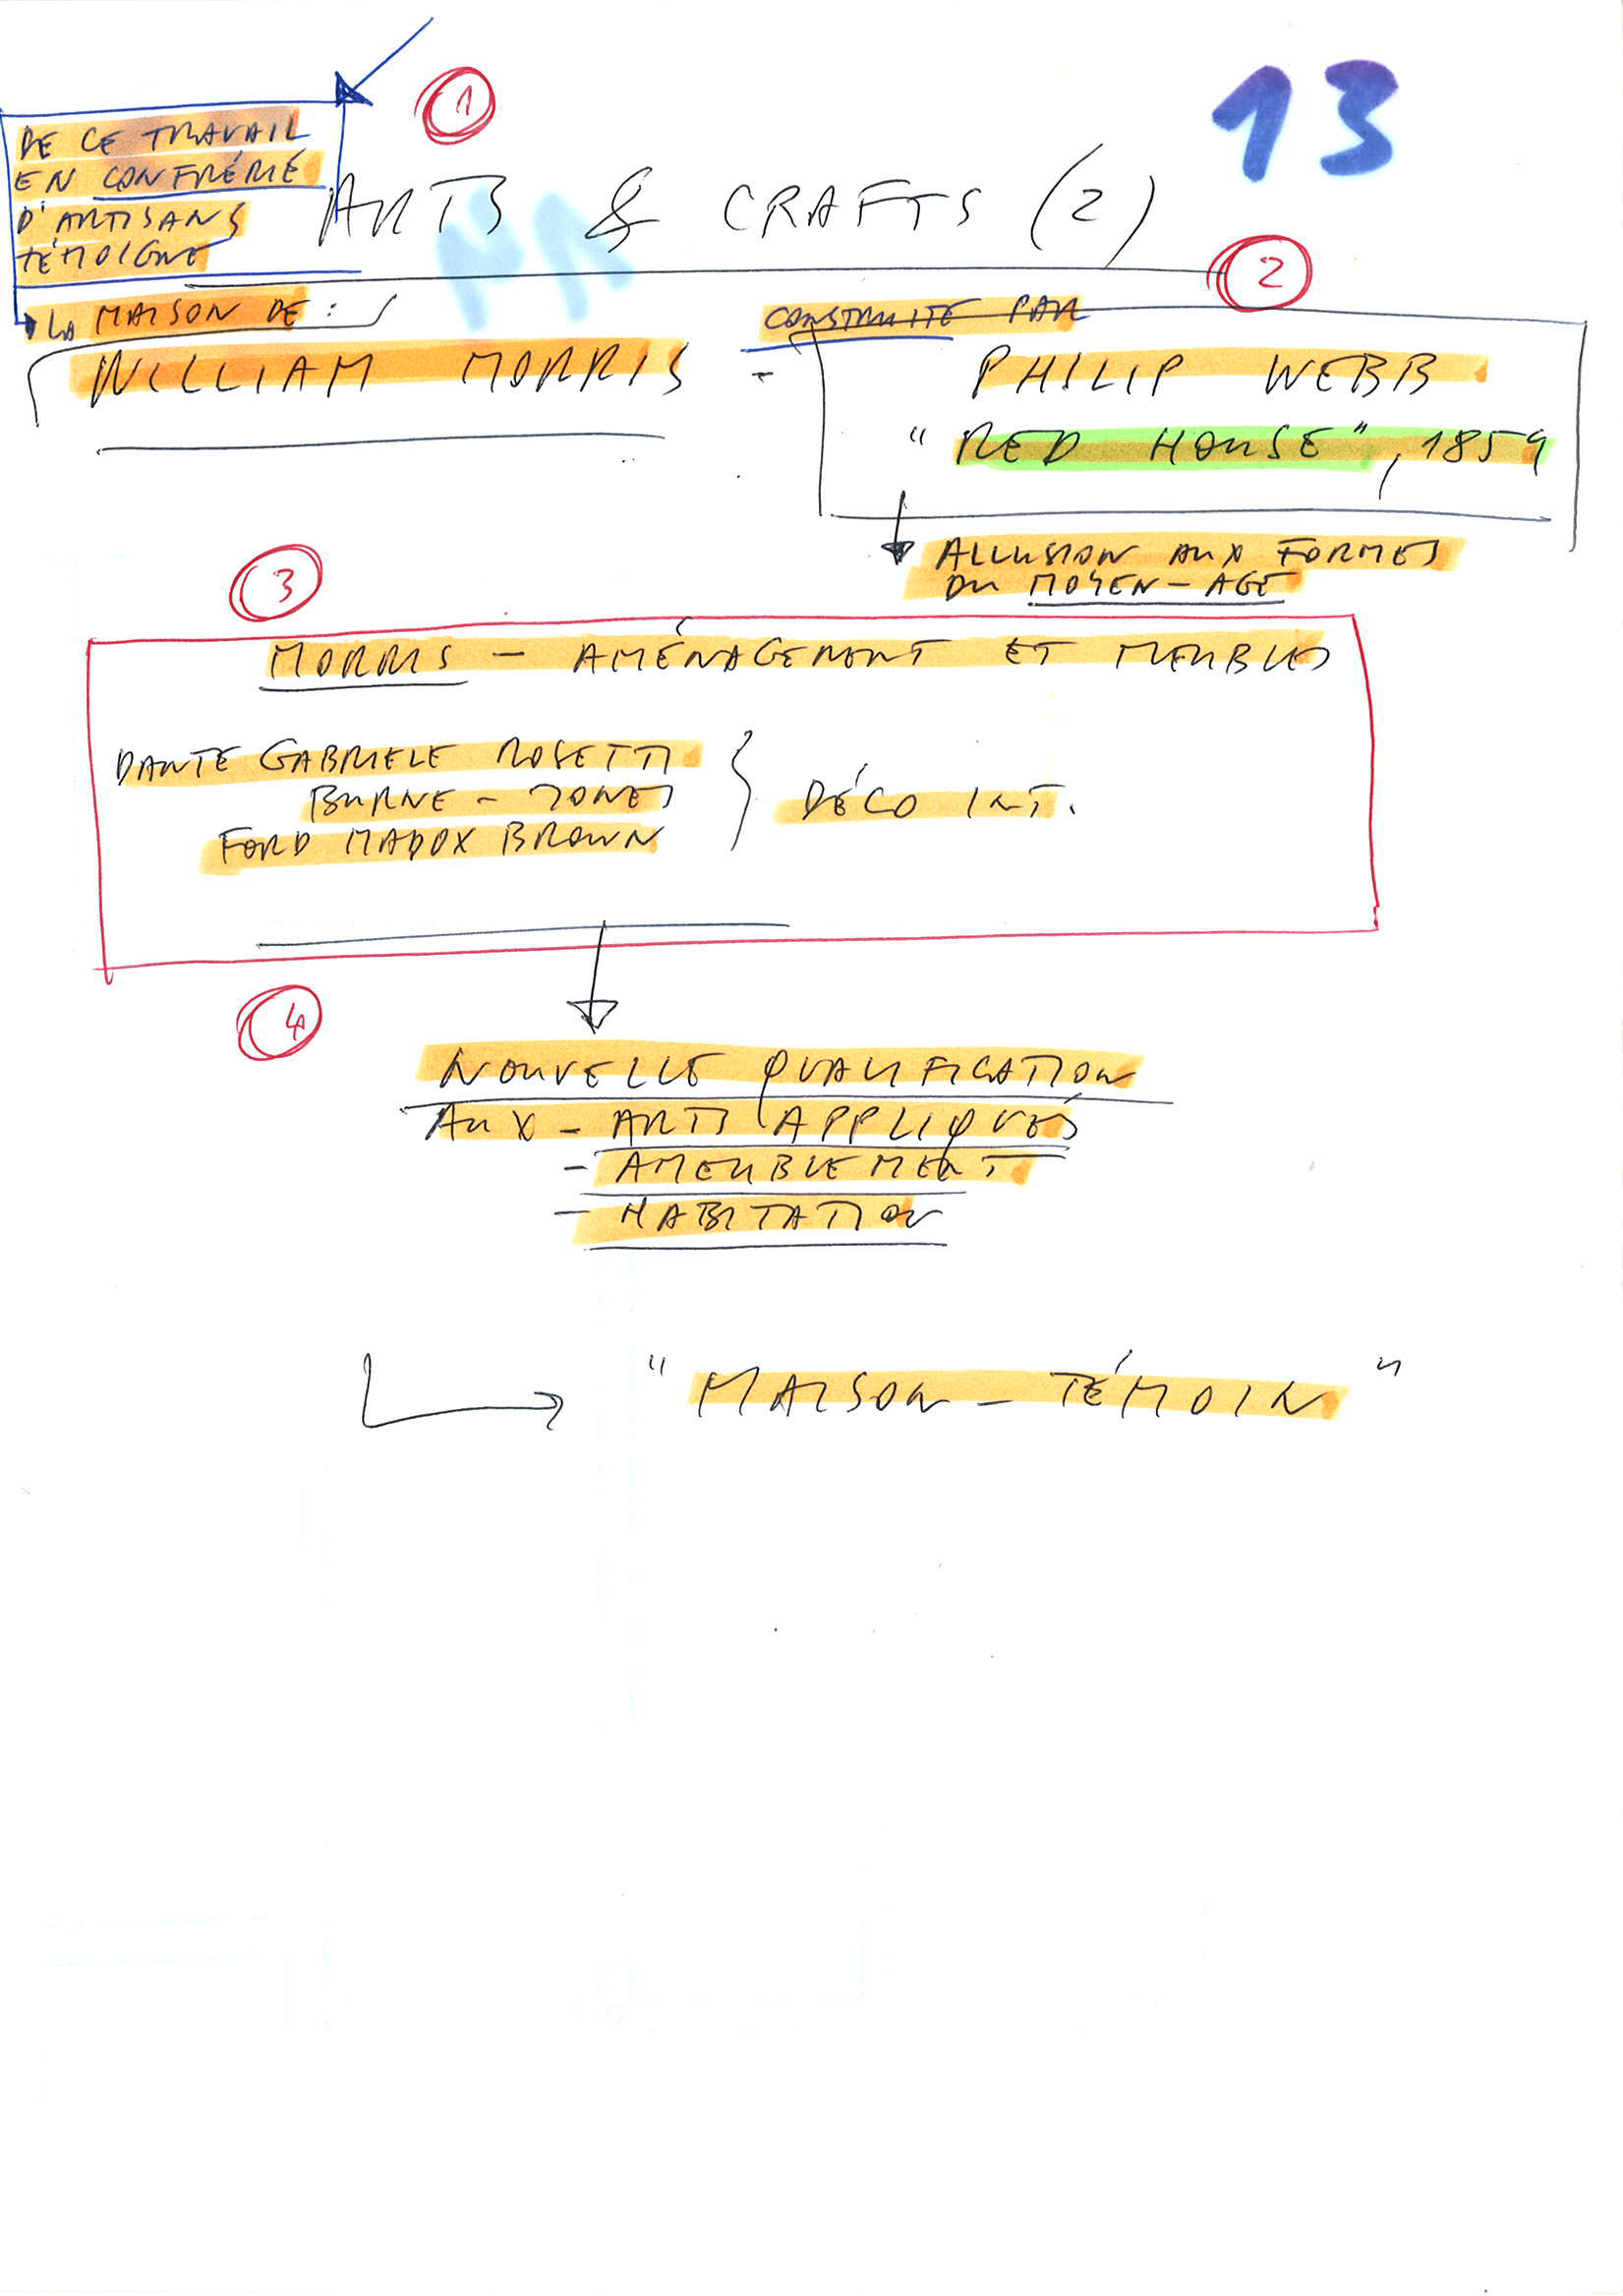 13
1
DE CE TRAVAIL
EN CONFRÉRIE
D'ARTISANS
TÉMOIGNE
ARTS & CRAFTS (2)
2
LA MAISON DE :
CONSTRUITE PAR
WILLIAM MORRIS -
PHILIP WEBB
"RED HOUSE", 1859
ALLUSION AUX FORMES
DU MOYEN-AGE
3
MORRIS - AMÉNAGEMENT ET MEUBLES
DANTE GABRIELE ROSETTI
BURNE-JONES
FORD MADOX BROWN
DÉCO INT.
4
NOUVELLE QUALIFICATION
AUX - ARTS APPLIQUÉS
- AMEUBLEMENT
- HABITATION
"MAISON-TÉMOIN"